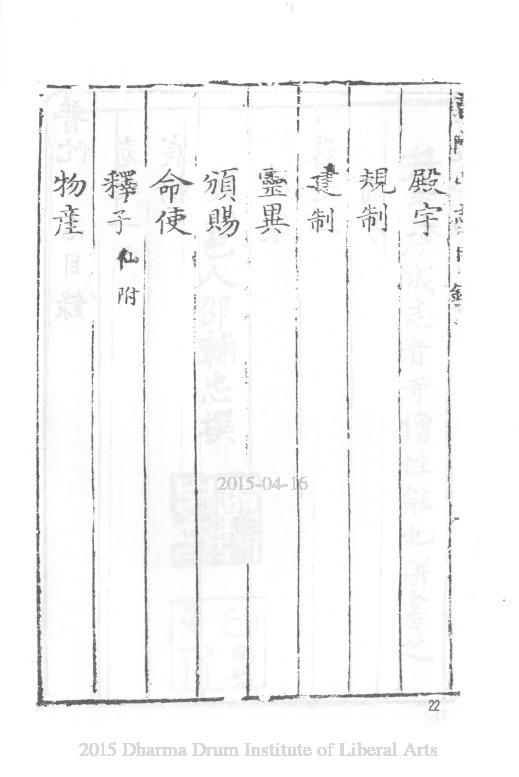 殿宇
規制
建制
靈異
頒賜
命使
釋子 仙附
物産
2015-04-16
22
2015 Dharma Drum Institute of Liberal Arts